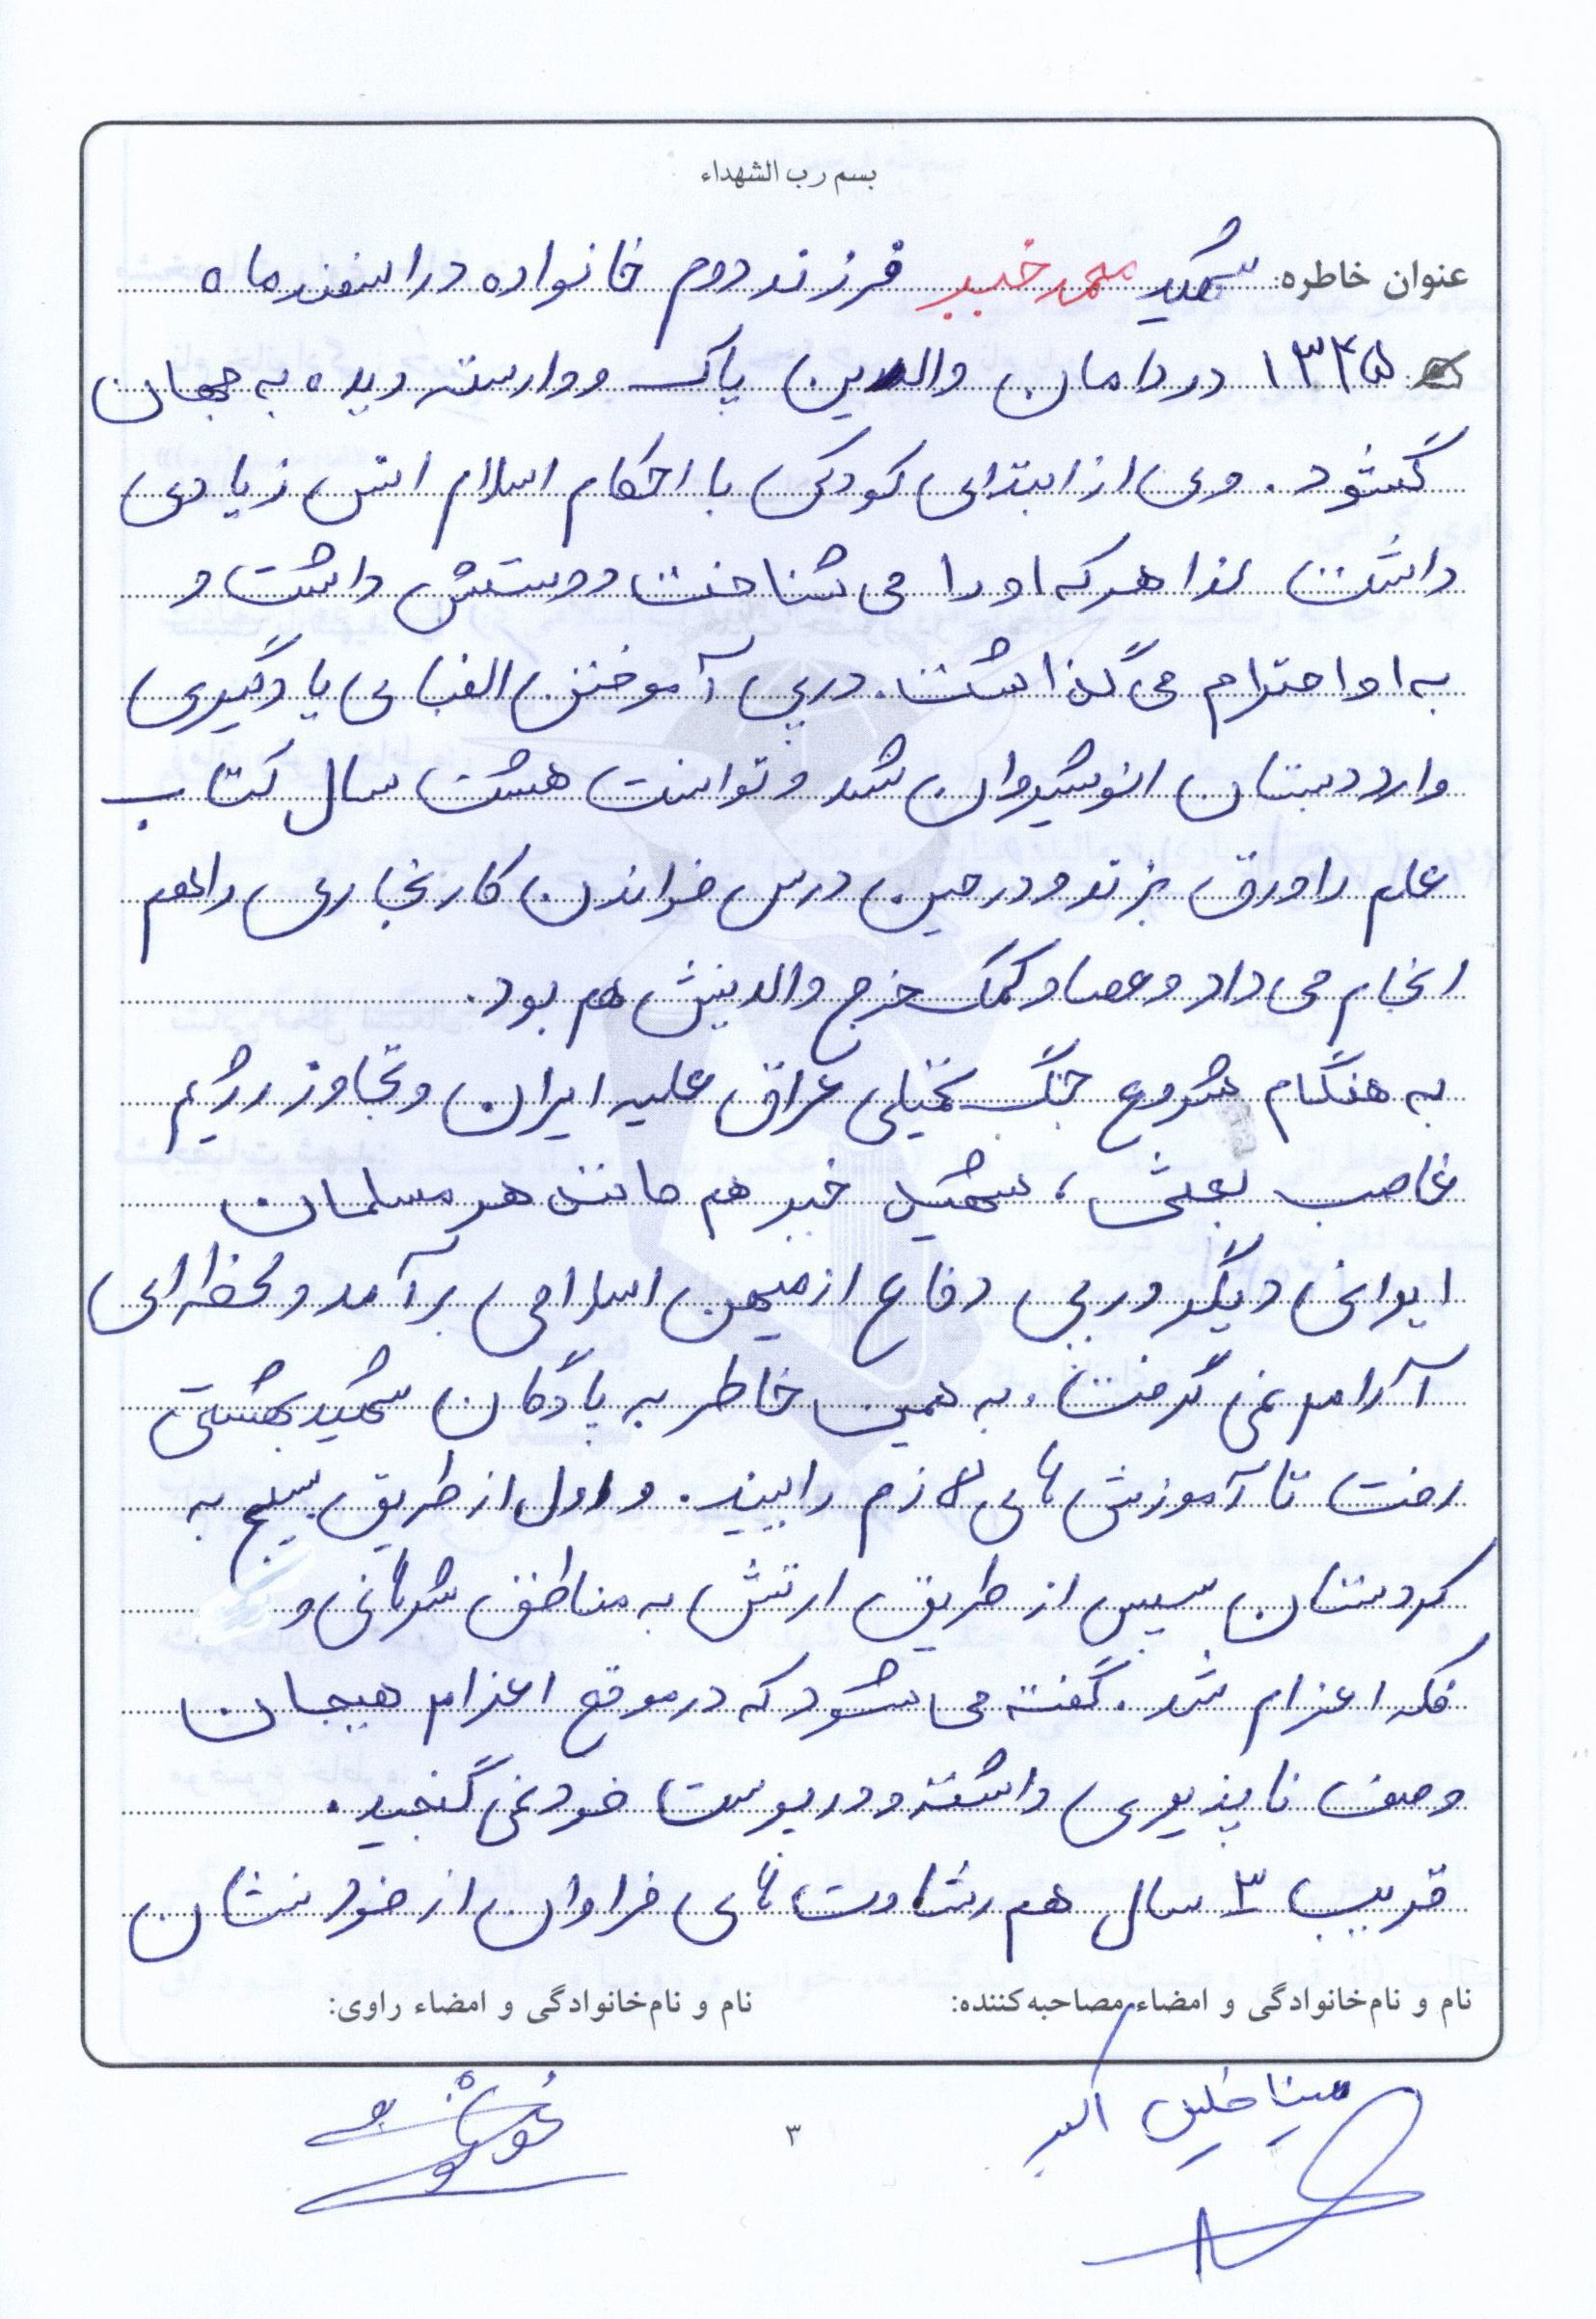 بسم رب الشهداء
عنوان خاطره: شهید محمد خبیر فرزند دوم خانواده در اسفند ماه
۱۳۴۵ در دامان والدین پاک و وارسته دیده به جهان
گشود. وی از ابتدای کودکی با احکام اسلام انس زیادی
داشت لذا هر که او را می شناخت دوستش داشت و
به او احترام می گذاشت. در پی آموختن الفبای یادگیری
وارد دبستان انوشیروان شد و توانست هشت سال کتاب
علم را ورق بزند و در حین درس خواندن کار نجاری را هم
انجام می داد و عصا و کمک خرج والدینش هم بود.
به هنگام شروع جنگ تحمیلی عراق علیه ایران و تجاوز رژیم
غاصب بعثی، شهید خبیر هم مانند هر مسلمان
ایرانی دیگر در پی دفاع از میهن اسلامی برآمد و لحظه ای
آرام نمی گرفت. به همین خاطر به پادگان شهید بهشتی
رفت تا آموزش های لازم را ببیند. و اول از طریق بسیج به
کردستان سپس از طریق ارتش به مناطق شرهانی و
فکه اعزام شد. گفته می شود که در موقع اعزام هیجان
وصف ناپذیری داشته و در پوست خود نمی گنجید.
قریب ۳ سال هم رشادت های فراوان از خود نشان
نام و نام‌خانوادگی و امضاء مصاحبه‌کننده:
نام و نام‌خانوادگی و امضاء راوی:
مینا خلیل اکبر
۳